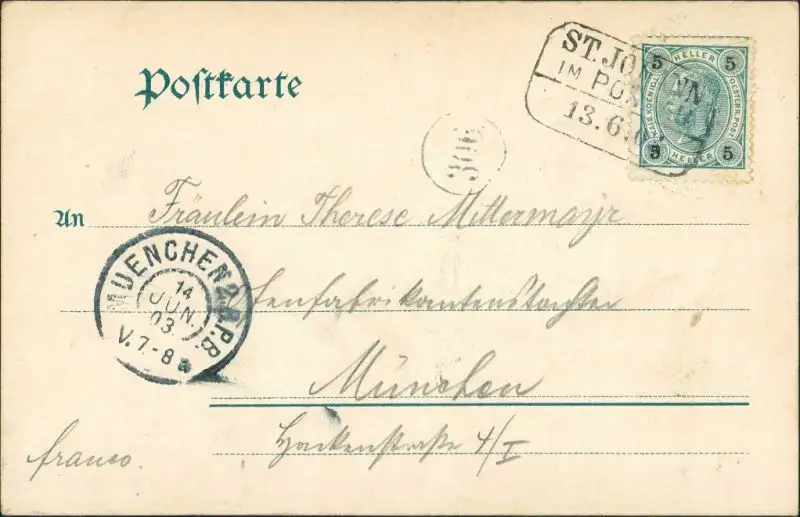 Postkarte
ST. JOHANN
IM PON
13.6.
HELLER
5 5
KAIS. KOENIGL.
OESTERR. POST
5 5
HELLER
306
An Fräulein Therese Mittermayr
fenfabrikantenstochter
München
Hackenstraße 4/I
franco.
MUENCHEN 2. B.P.B.
14
JUN.
03
V. 7-8